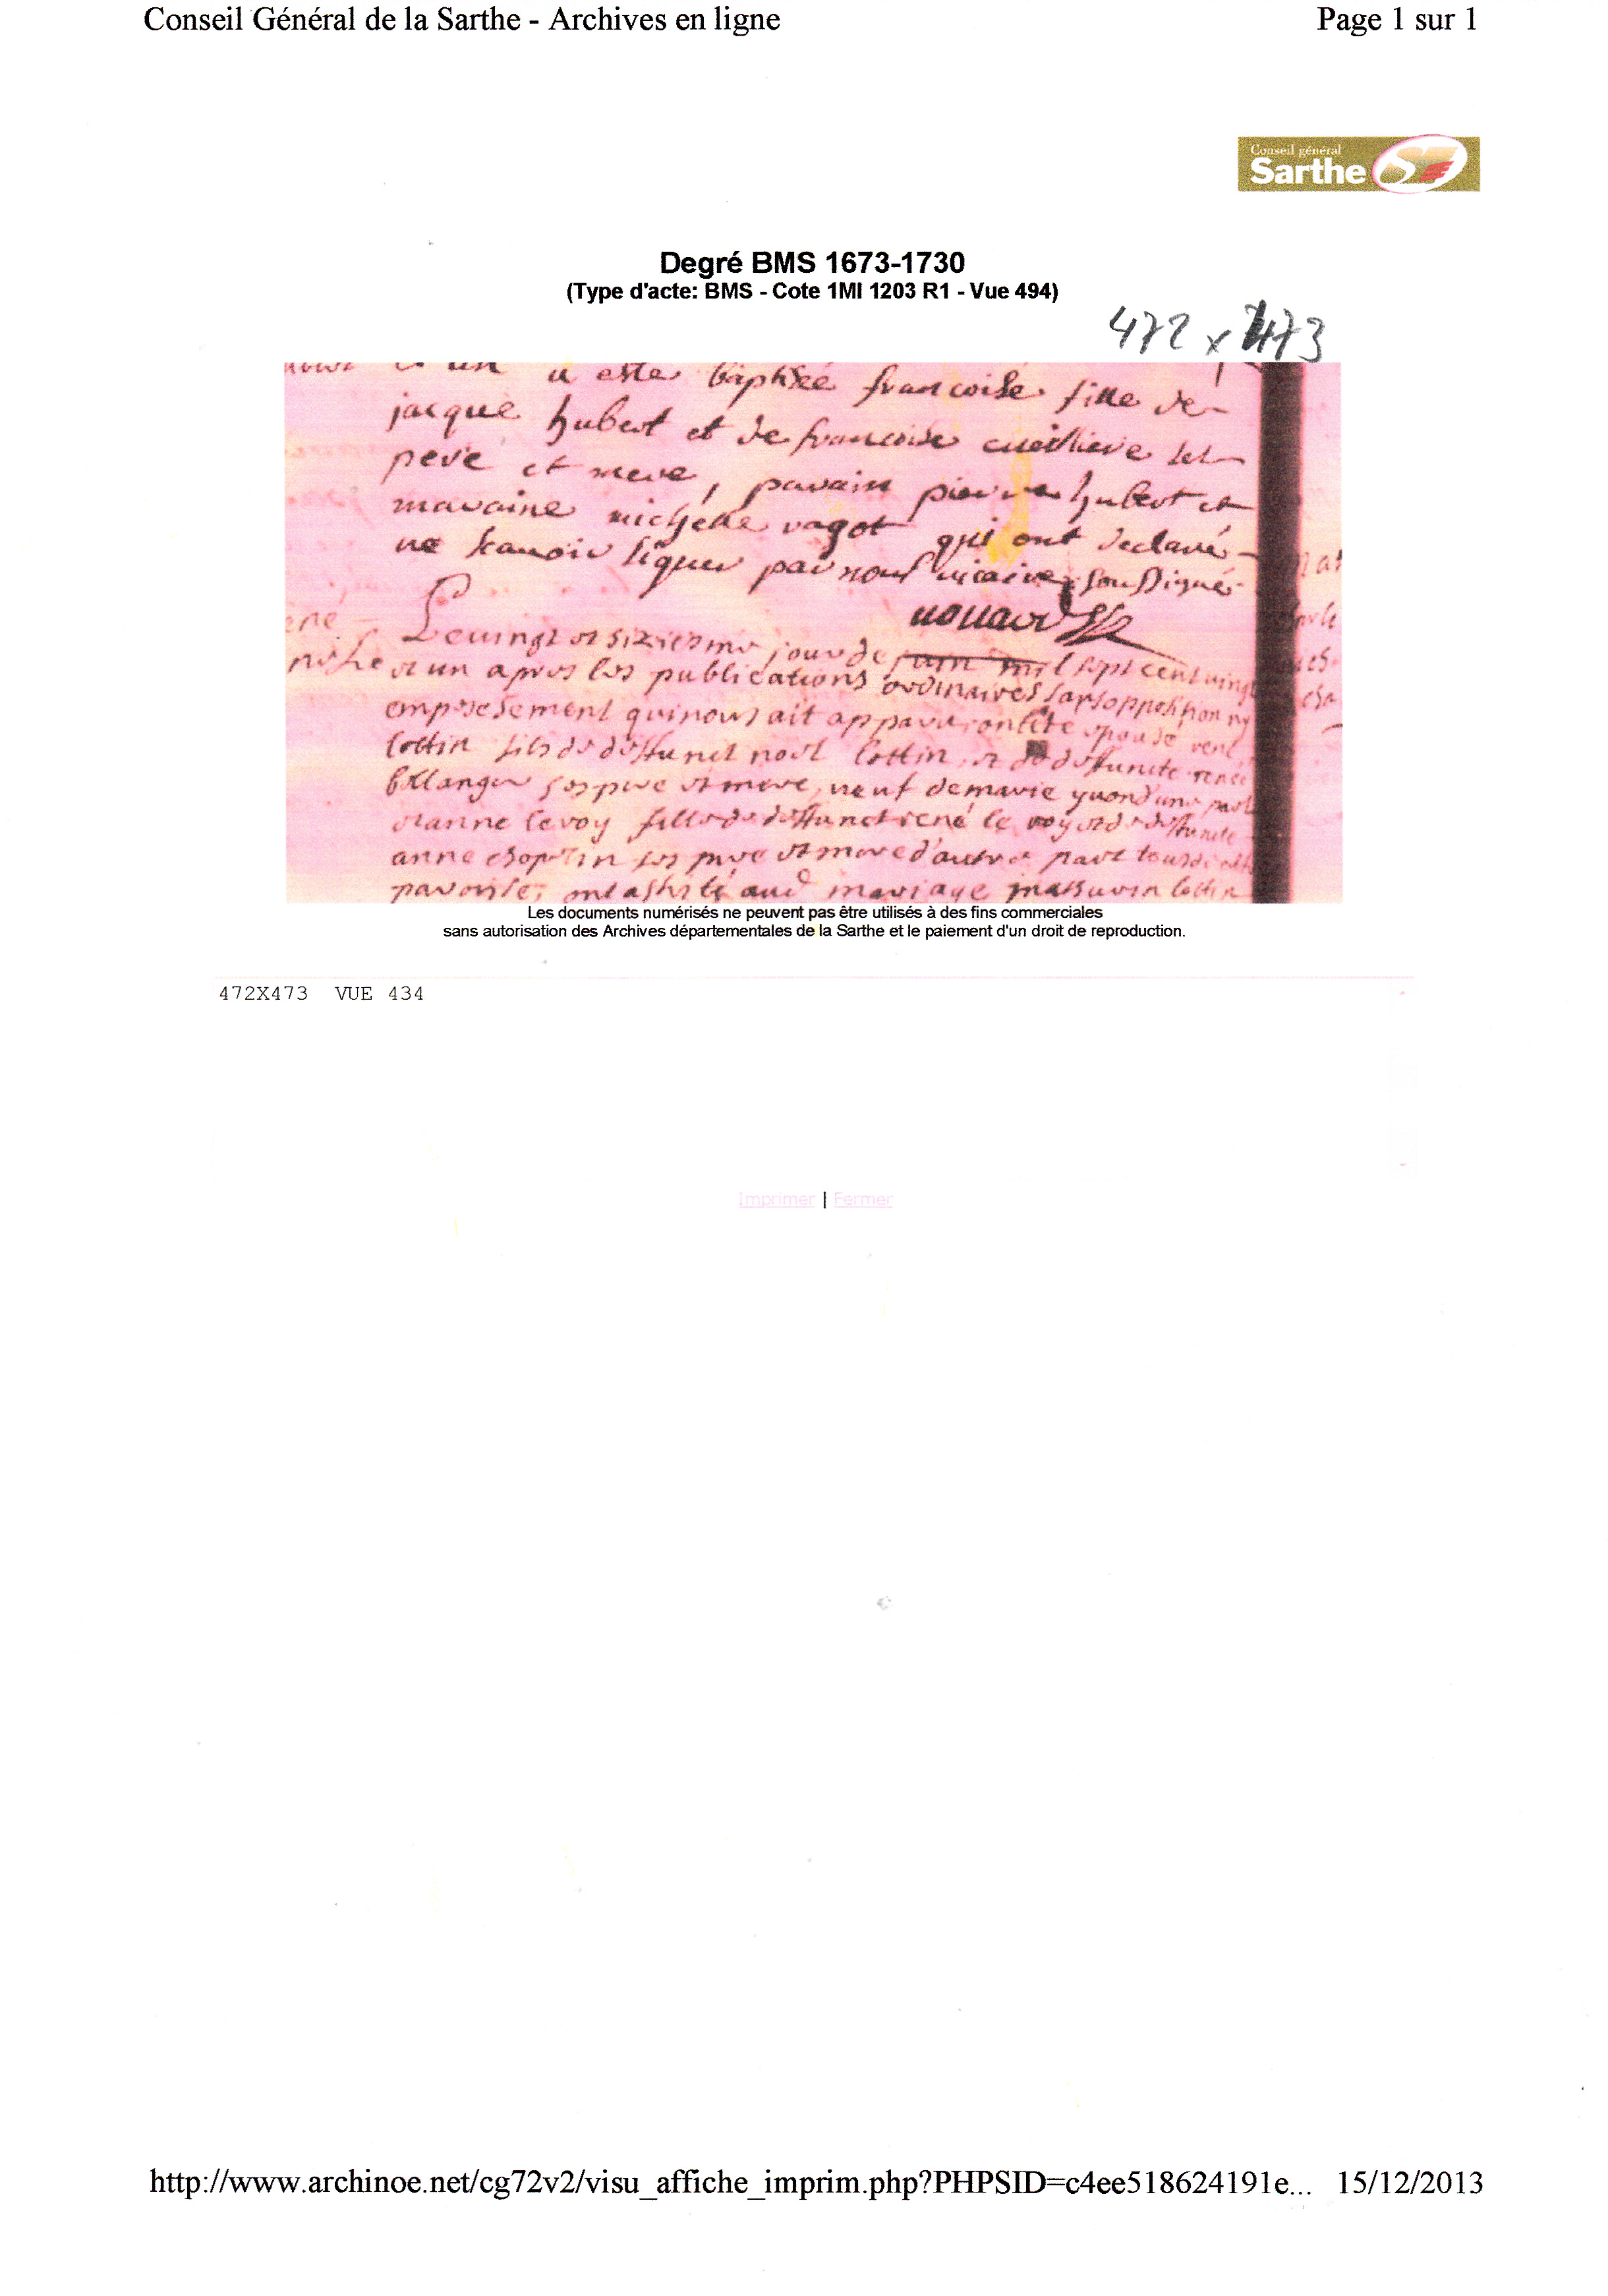 Conseil Général de la Sarthe - Archives en ligne Page 1 sur 1
Conseil général
Sarthe
Degré BMS 1673-1730
(Type d'acte: BMS - Cote 1MI 1203 R1 - Vue 494)
472 x 473
un a esté baptisée francoise fille de
jacque hubert et de francoise cueilliere ses
pere et mere, parain pierre hubert et
maraine michelle vagot qui ont declaré
ne scauoir signer par nous vicaire soussigné
Le vingt et sixiesme jour de juin mil sept cent vingt
et un apres les publications ordinaires sans opposition ny
empeschement qui nous ait apparu, ont été épousé rené
lottin fils de deffunct noel lottin, et de deffuncte renée
bellanger ses pere et mere, neuf de marie quond'une part
et anne le roy fille de deffunct rené le roy et de deffuncte
anne choplin ses pere et mere d'autre part tous de cette
paroisse, ont assisté aud mariage mathurin lottin
Les documents numérisés ne peuvent pas être utilisés à des fins commerciales
sans autorisation des Archives départementales de la Sarthe et le paiement d'un droit de reproduction.
472X473 VUE 434
Imprimer | Fermer
http://www.archinoe.net/cg72v2/visu_affiche_imprim.php?PHPSID=c4ee518624191e... 15/12/2013